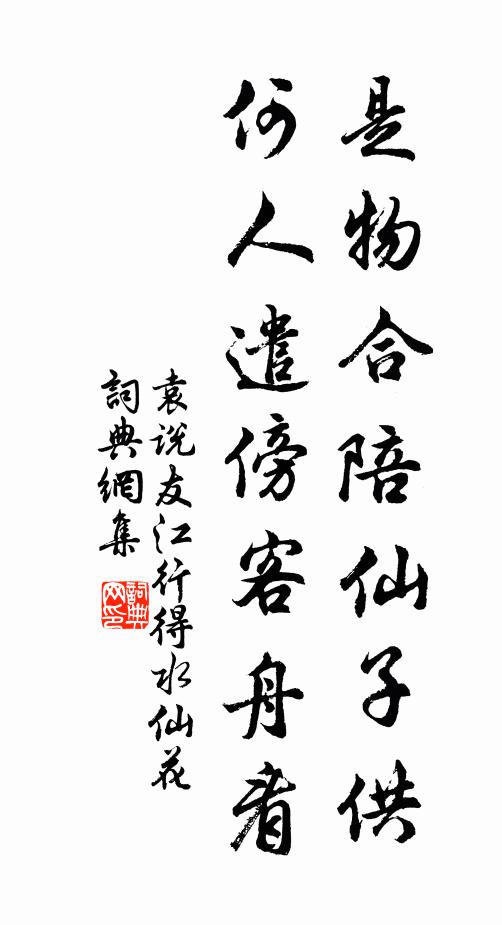 是物合陪仙子供
何人遣傍客舟看
袁說友江行得水仙花
詞典網集
詞典
网印